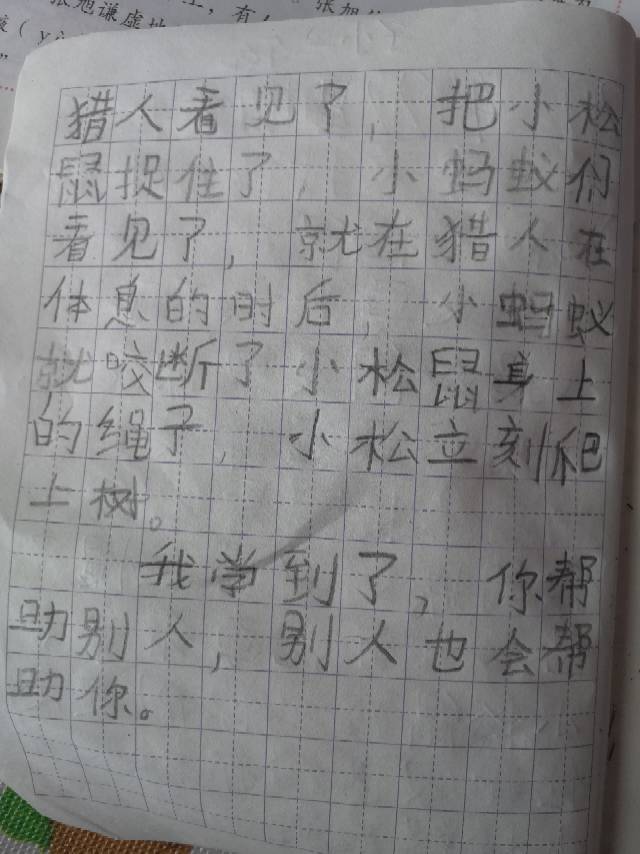 张旭谦虚地
猎人看见了，把小松
鼠捉住了，小蚂蚁们
看见了，就在猎人在
体息的时后，小蚂蚁
就咬断了小松鼠身上
的绳子，小松立刻爬
上树。
我学到了，你帮
助别人，别人也会帮
助你。